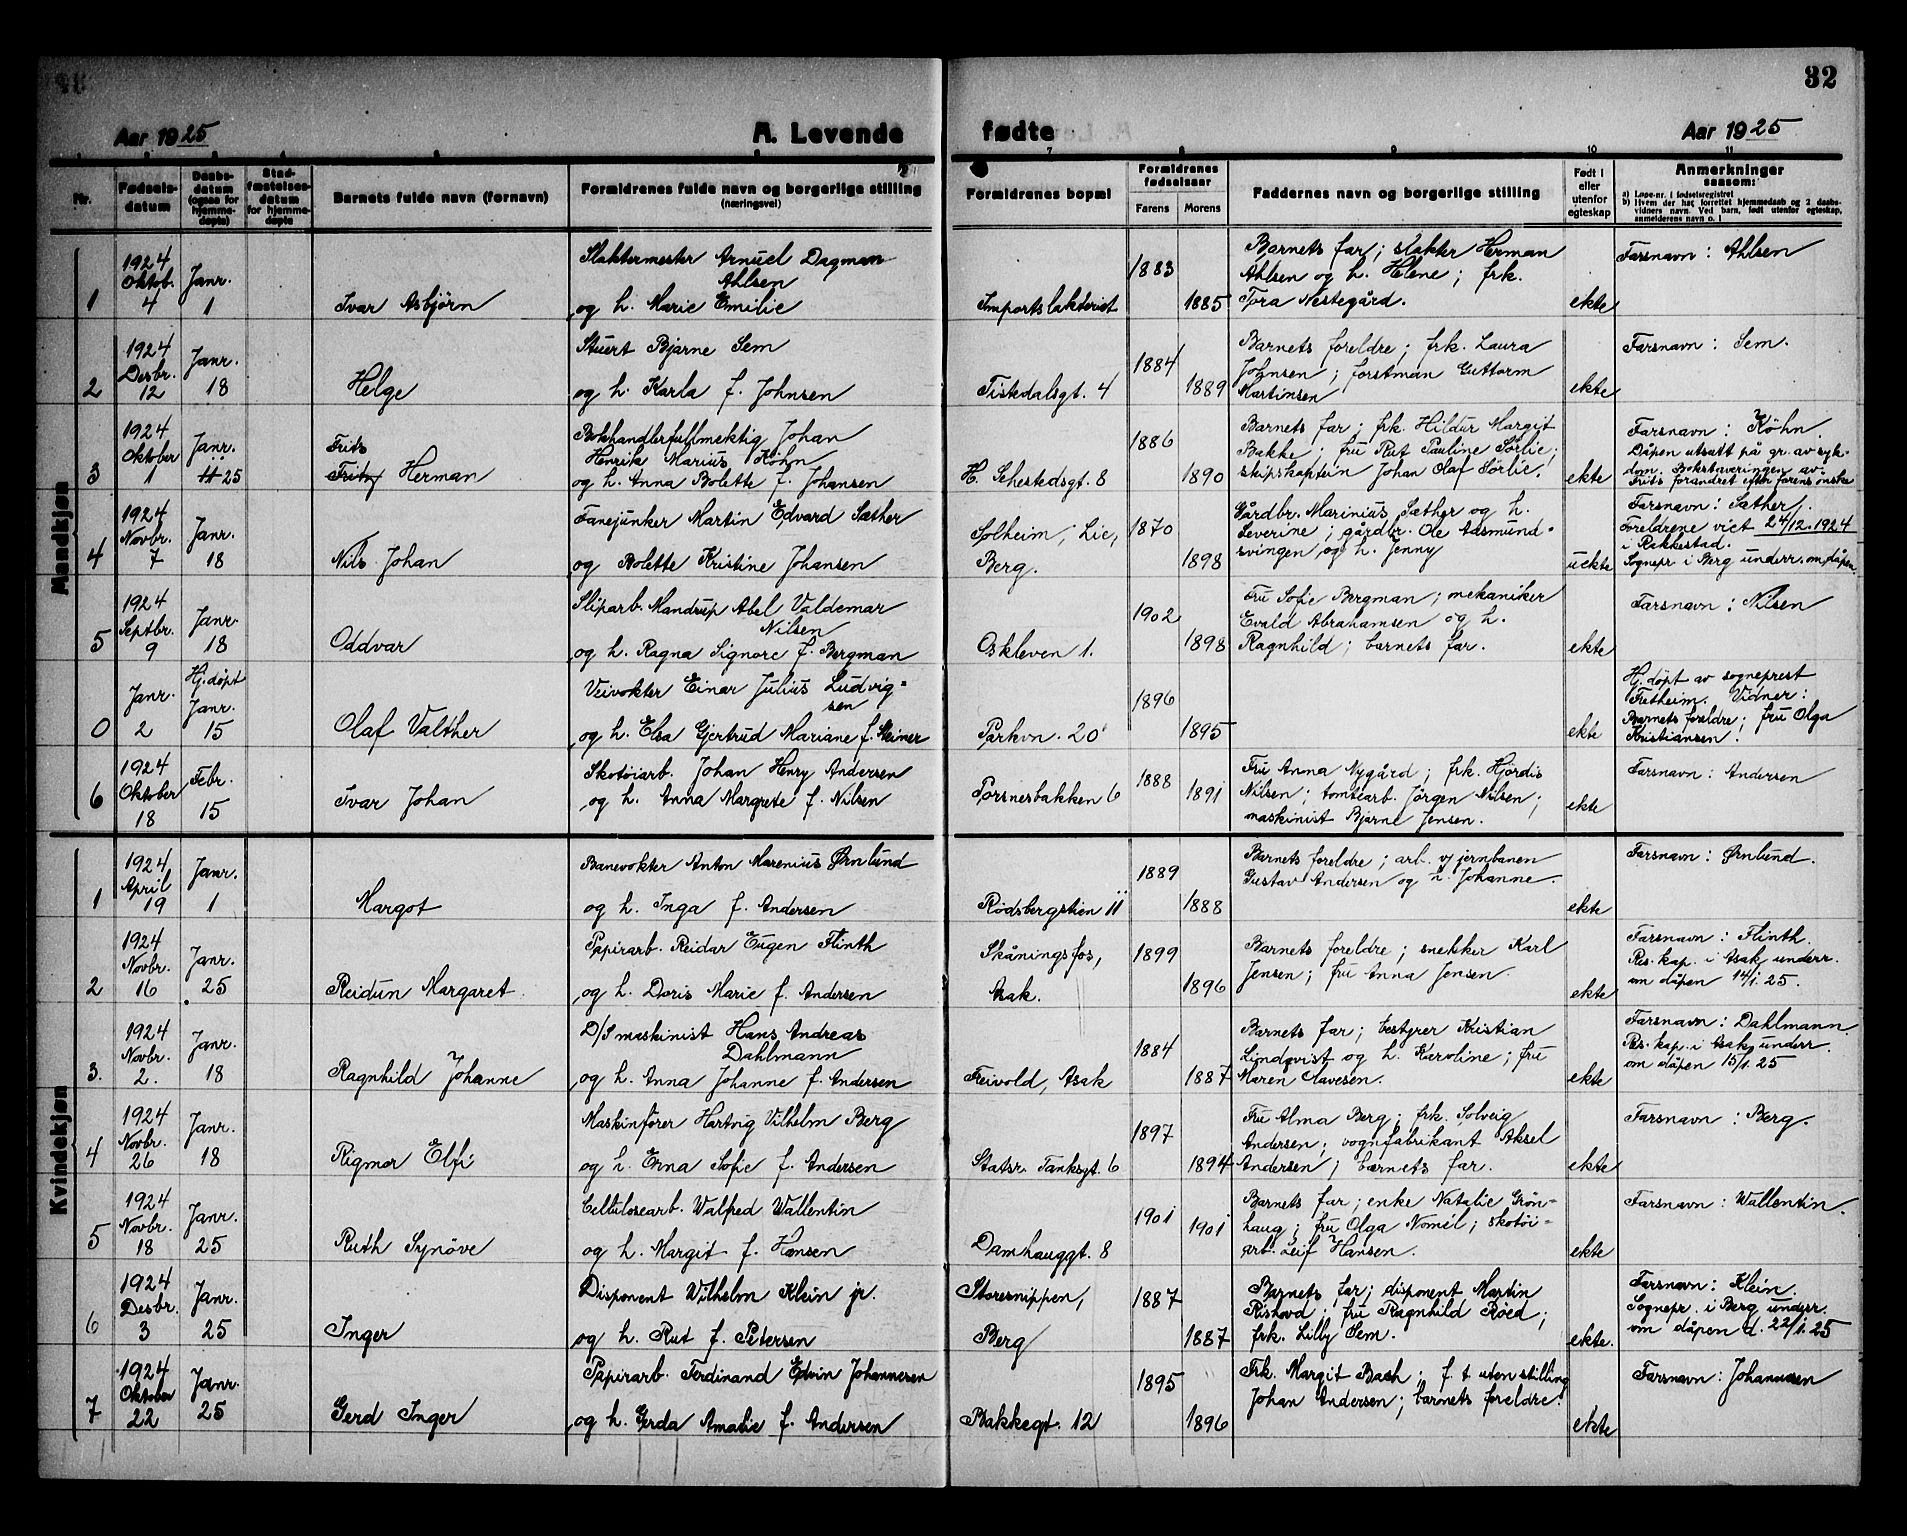 32
Aar 1925
A. Levende
fødte
Aar 1925
Nr.
Fødsels-
datum
Daabs-
datum
(ogsaa for
hjemme-
døpte)
Stad-
fæstelses-
datum
for hjemme-
døpte
Barnets fulde navn (fornavn)
Forældrenes fulde navn og borgerlige stilling
(næringsvei)
7
8
9
10
11
Forældrenes bopæl
Forældrenes
fødselsaar
Farens
Morens
Faddernes navn og borgerlige stilling
Født i
eller
utenfor
egteskap
Anmerkninger
saasom:
a) Løpe-nr. i fødselsregistret
b) Hvem der har forrettet hjemmedaab og 2 daabs-
vidners navn. Ved barn, født utenfor egteskap,
anmelderens navn o. l
Mandkjøn
1
1924
Oktob.
4
Janr.
1
Ivar Asbjörn
Slaktermester Arnuel Dagman
Ahlsen
og h. Marie Emilie
Importslakteriet
1883
1885
Barnets far; slakter Herman
Ahlsen og h. Helene; frk.
Tora Nestegård.
ekte
Farsnavn: Ahlsen
2
1924
Desbr.
12
Janr.
18
Helge
Stuert Bjarne Sem
og h. Karla f. Johnsen
Tistedalsgt. 4
1884
1889
Barnets foreldre; frk. Laura
Johnsen; forstman Guttorm
Martinsen
ekte
Farsnavn: Sem.
3
1924
Oktober
1
Janr.
11 25
Frits
Fritz Herman
Bokhandlerfullmektig Johan
Henrik Marius Köhn
og h. Anna Bolette f. Johansen
H. Sehestedsgt. 8
1886
1890
Barnets far; frk. Hildur Margit
Bakke; fru Rut Pauline Sörlie;
skipskaptein Johan Olaf Sörlie.
ekte
Farsnavn: Köhn
Dåpen utsatt på gr. av syk-
dom. Bokstaveringen av
Frits forandret efter farens önske
4
1924
Novbr.
7
Janr.
18
Nils Johan
Fanejunker Martin Edvard Sæther
og Bolette Kristine Johansen
Solheim, Lie,
Berg.
1870
1898
Gårdbr. Marinius Sæther og h.
Severine; gårdbr. Ole Aasmund-
svingen og h. Jenny
uekte
Farsnavn: Sæther.
Foreldrene viet 24/12.1924
i Rakkestad.
Sognepr. i Berg underr. om dåpen.
5
1924
Septbr.
9
Janr.
18
Oddvar
Sliparb. Mandrup Abel Valdemar
Nilsen
og h. Ragna Signore f. Bergman
Oskleven 1.
1902
1898
Fru Sofie Bergman; mekaniker
Evald Abrahamsen og h.
Ragnhild; barnets far.
ekte
Farsnavn: Nilsen
0
Janr.
2
Hj. döpt
Janr.
15
Olaf Valther
Veivokter Einar Julius Ludvig=
sen
og h. Elsa Gjertrud Mariane f. Steiner
Parkvn. 20
1896
1895
ekte
Hj. döpt av sogneprest
Fretheim. Vidner:
Barnets foreldre; fru Olga
Kristiansen.
6
1924
Oktober
18
Febr.
15
Ivar Johan
Skotöiarb. Johan Henry Andersen
og h. Anna Margrete f. Nilsen
Porsnesbakken 6
1888
1891
Fru Anna Nygård; frk. Hjördis
Nilsen; tomtearb. Jörgen Nilsen;
maskinist Bjarne Jensen.
ekte
Farsnavn: Andersen
Kvindekjøn
1
1924
April
19
Janr.
1
Margot
Banevokter Anton Marenius Örnlund
og h. Inga f. Andersen
Rödsbergstien 11
1889
1888
Barnets foreldre; arb. v/ jernbanen
Gustav Andersen og h. Johanne.
ekte
Farsnavn: Örnlund.
2
1924
Novbr.
16
Janr.
25
Reidun Margaret
Papirarb. Reidar Eugen Flinth
og h. Doris Marie f. Andersen
Skåningsfos,
Asak.
1899
1896
Barnets foreldre; snekker Karl
Jensen; fru Anna Jensen.
ekte
Farsnavn: Flinth.
Res. kap. i Asak underr.
om dåpen 14/1.25.
3.
1924
Novbr.
2.
Janr.
18
Ragnhild Johanne
D/S maskinist Hans Andreas
Dahlmann
og h. Anna Johanne f. Andersen
Freivold, Asak
1884
1887
Barnets far; bestyrer Kristian
Lindqvist og h. Karoline; fru
Maren Clavesen.
ekte
Farsnavn: Dahlmann.
Res. kap. i Asak underr.
om dåpen 15/1.25
4
1924
Novbr.
26
Janr.
18
Rigmor Elfi
Maskinförer Hartvig Vilhelm Berg
og h. Erna Sofie f. Andersen
Statsr. Tanksgt. 6
1897
1894
Fru Alma Berg; frk. Solveig
Andersen; vognfabrikant Aksel
Andersen; barnets far.
ekte
Farsnavn: Berg.
5
1924
Novbr.
18
Janr.
25
Ruth Synöve
Cellulosearb. Walfred Wallentin
og h. Margit f. Hansen
Damhauggt. 8
1901
1901
Barnets far; enke Natalie Grön-
haug; fru Olga Nomèl; skotöi-
arb. Leif Hansen.
ekte
Farsnavn: Wallentin.
6
1924
Desbr.
3
Janr.
25
Inger
Disponent Wilhelm Klein jr.
og h. Rut f. Petersen
Storesnippen,
Berg
1887
1887
Barnets far; disponent Martin
Rishovd; fru Ragnhild Röed;
frk. Lilly Sem.
ekte.
Farsnavn: Klein.
Sognepr. i Berg underr.
om dåpen d. 22/1.25
7
1924
Oktober
22
Janr.
25
Gerd Inger
Papirarb. Ferdinand Edvin Johannesen
og h. Gerda Amalie f. Andersen
Bakkegt. 12
1895
1896
Frk. Margit Bash; f. t. uten stilling
Johan Andersen; barnets foreldre.
ekte
Farsnavn: Johannesen